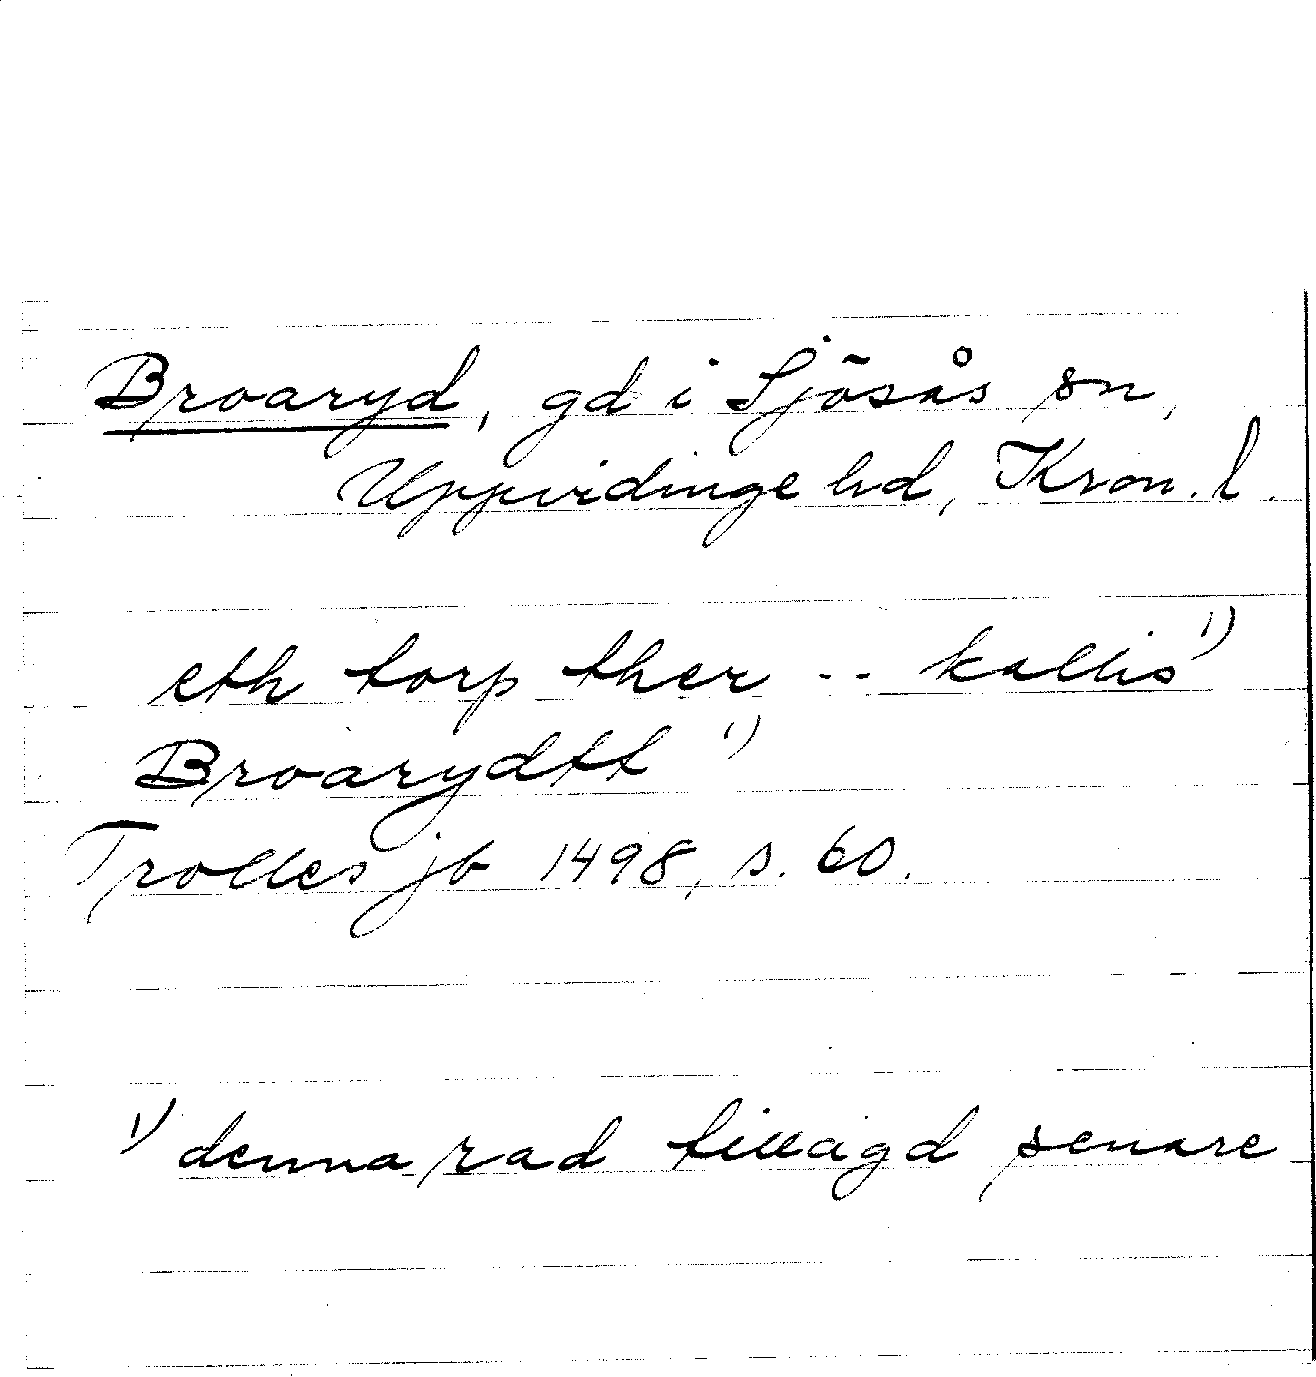 Broaryd, gd i Sjösås sn,
Uppvidinge hd, Kron. l.
eth torp ther -- kallis 1)
Broarydtt 1)
Trolles jb 1498, s. 60.
1) denna rad tillägd senare